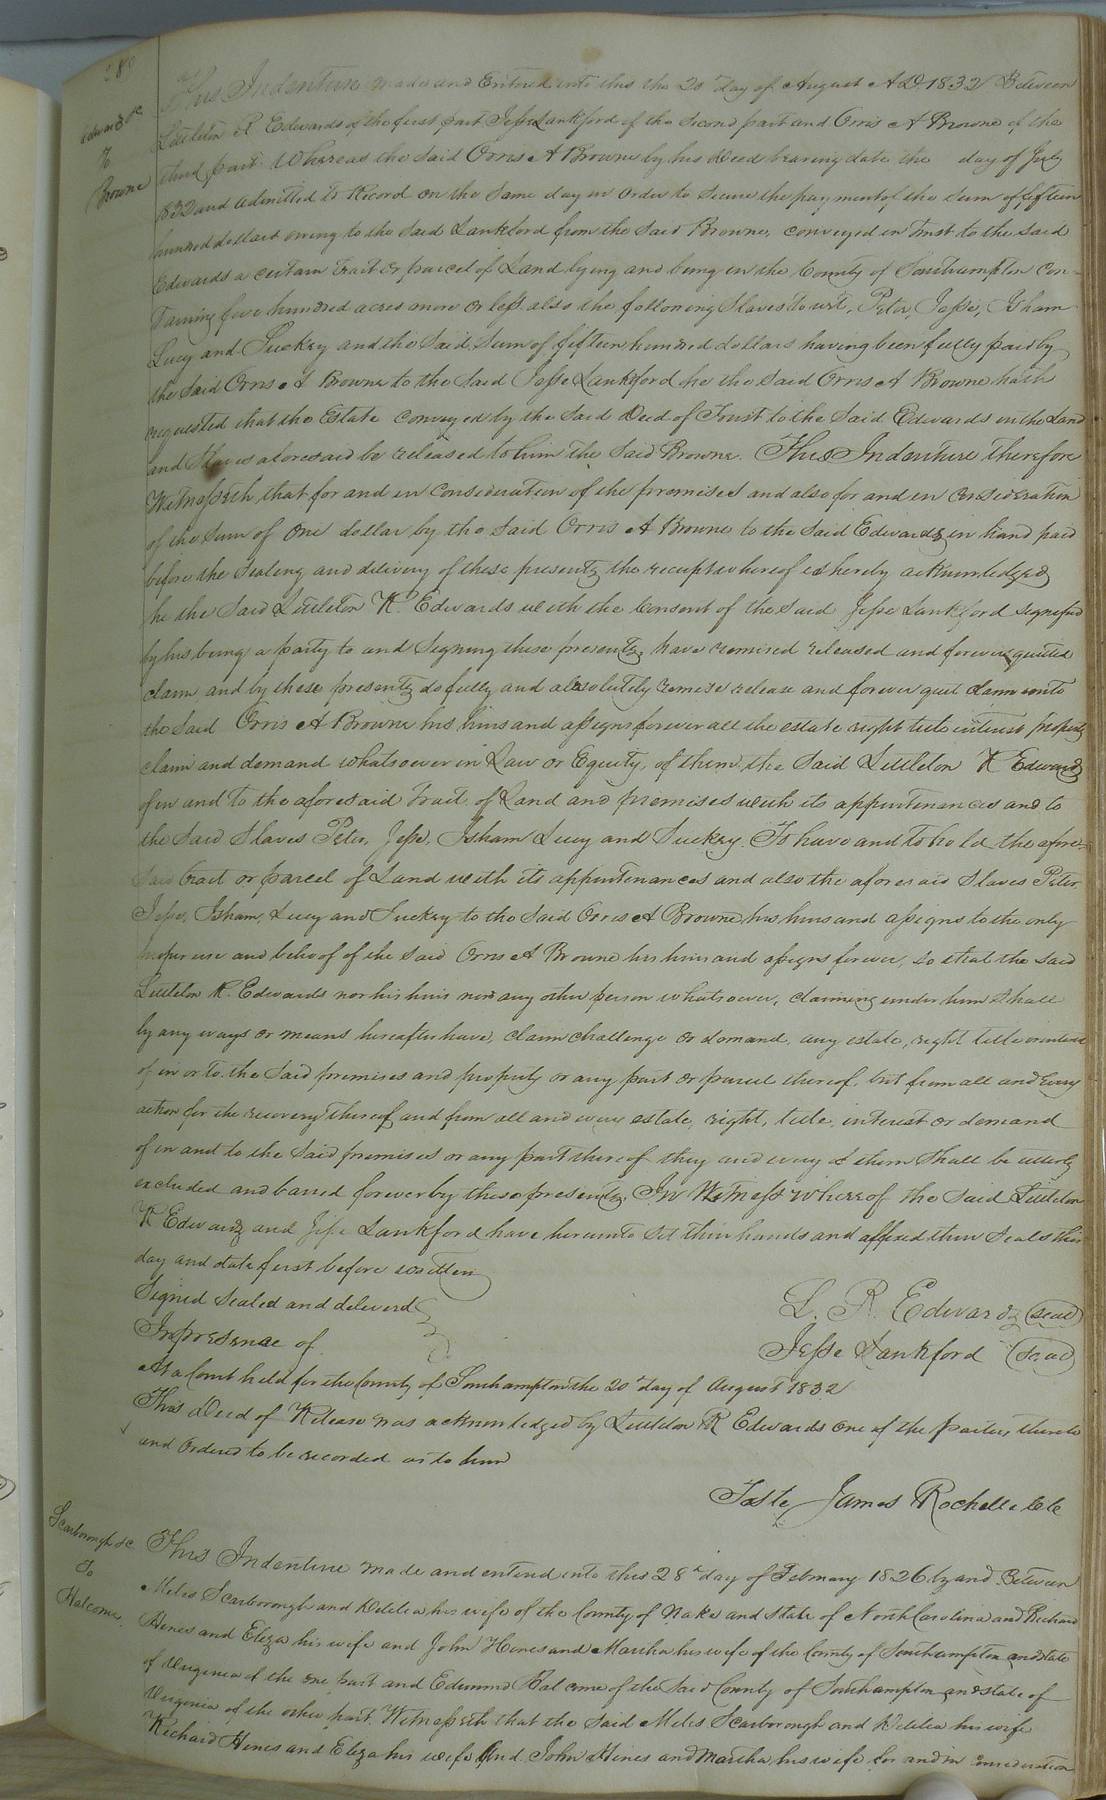 280
Edwards &c
To
Browne
This Indenture made and Entered into this the 20th day of August A D. 1832 Between
Littleton R Edwards of the first part Jesse Lankford of the Second part and Orris A Browne of the
third part. Whereas the said Orris A Browne by his Deed bearing date the day of July
1832 and admitted to Record on the Same day in order to Secure the payment of the Sum of fifteen
hundred dollars owing to the said Lankford from the said Browne, conveyed in trust to the said
Edwards a certain tract or parcel of Land lying and being in the County of Southampton Con-
taining five hundred acres more or less also the following Slaves to wit, Peter, Jesse, Isham
Lucy and Suckey and the Said Sum of fifteen hundred dollars having been fully paid by
the Said Orris A Browne to the Said Jesse Lankford he the Said Orris A Browne hath
requested that the Estate conveyed by the Said Deed of Trust to the Said Edwards in the Land
and Slaves aforesaid be released to him the Said Browne. This Indenture therefore
Witnesseth that for and in Consideration of the premises and also for and in consideration
of the Sum of One dollar by the Said Orris A Browne to the Said Edwards in hand paid
before the Sealing and delivery of these presents the receipt whereof is hereby acknowledged
he the Said Littleton R. Edwards with the Consent of the said Jesse Lankford signified
by his being a party to and Signing these presents, have remised released and forever quited
claim, and by these presents do fully and absolutely remise release and forever quit claim unto
the Said Orris A Browne his heirs and assigns forever all the estate right title interest property
claim and demand whatsoever in Law or Equity, of them the Said Littleton R Edwards
of in and to the aforesaid tract of Land and premises with its appurtenances and to
the Said Slaves Peter, Jesse, Isham Lucy and Suckey. To have and to hold the afore-
said tract or parcel of Land with its appurtenances and also the aforesaid Slaves Peter
Jesse, Isham, Lucy and Suckey to the Said Orris A Browne his heirs and assigns to the only
proper use and behoof of the said Orris A Browne his heirs and assigns forever, so that the said
Littleton R. Edwards nor his heirs nor any other person whatsoever, claiming under him Shall
by any ways or means hereafter have, claim challenge or demand, any estate, right title or interest
of in or to the Said premises and property or any part or parcel thereof, but from all and Every
action for the recovery thereof and from all and every estate, right, title, interest or demand
of in and to the Said premises or any part thereof they and every of them Shall be utterly
excluded and barred forever by these presents. In Witness whereof the Said Littleton
R Edwards and Jesse Lankford have hereunto Set their hands and affixed their Seals this
day and date first before written
Signed Sealed and deliverd
In presence of
L. R. Edwards (seal)
Jesse Lankford (seal)
At a Court held for the County of Southampton the 20th day of August 1832
This Deed of Release was acknowledged by Littleton R Edwards one of the parties thereto
and Ordered to be recorded as to him
Teste James Rochelle C C
Scarborough &c
To
Balcome
This Indenture made and entered into this 28th day of February 1826 by and Between
Miles Scarborough and his wife of the County of and State of North Carolina and Richard
Hines and Eliza his wife and John Hines and Martha his wife of the County of Southampton and state
of Virginia of the one part and Edmund Balcome of the Said County of Southampton and state of
Virginia of the other part. Witnesseth that the Said Miles Scarborough and his wife
Richard Hines and Eliza his wife And John Hines and Martha his wife for and in consideration